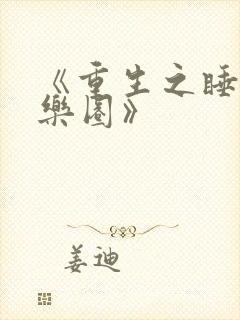 《重生之睡
樂園》
姜迪